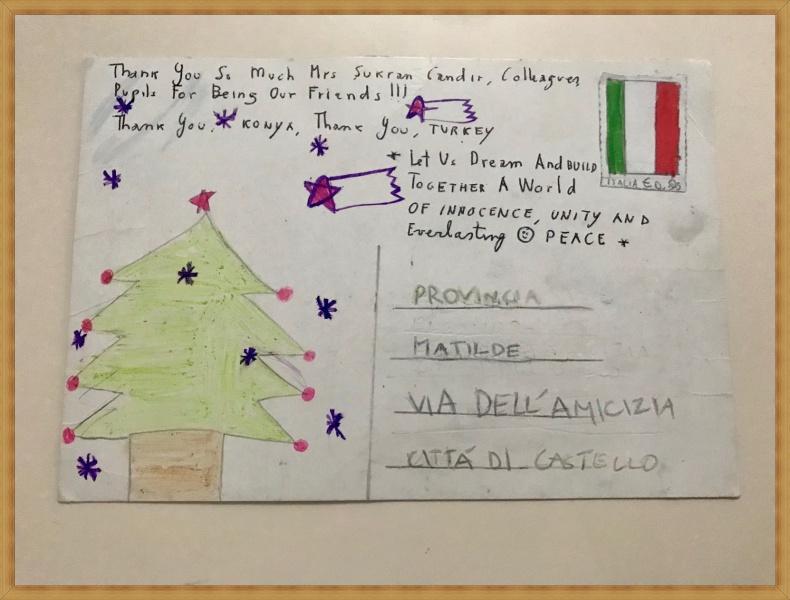 Thank You So Much Mrs Sukran Candir, Colleagues,
Pupils For Being Our Friends !!!
Thank You, KONYA, Thank You, TURKEY
* Let Us Dream And BUILD
TOGETHER A World
OF INNOCENCE, UNITY AND
Everlasting ☺ PEACE *
ITALIA
PROVINCIA
MATILDE
VIA DELL'AMICIZIA
CITTÁ DI CASTELLO